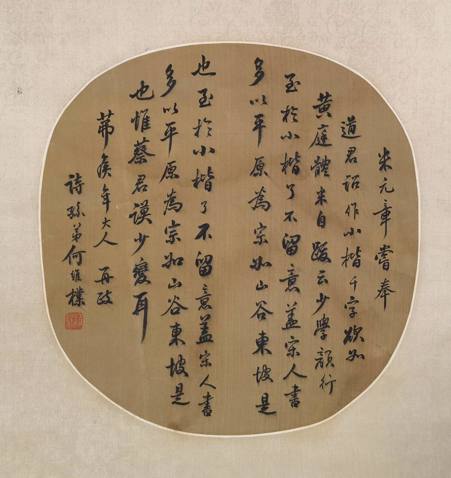 米元章嘗奉
道君詔作小楷千字欲如
黃庭體米自跋云少學顏行
至於小楷了不留意蓋宋人書
多以平原為宗如山谷東坡是
也至於小楷了不留意蓋宋人書
多以平原為宗如山谷東坡是
也惟蔡君謨少變耳
年大人 再政
詩孫弟何維樸